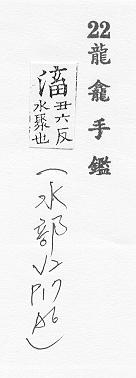 22 龍龕手鑑
滀 丑六反
水聚也
(水部 V2 P17 A6)